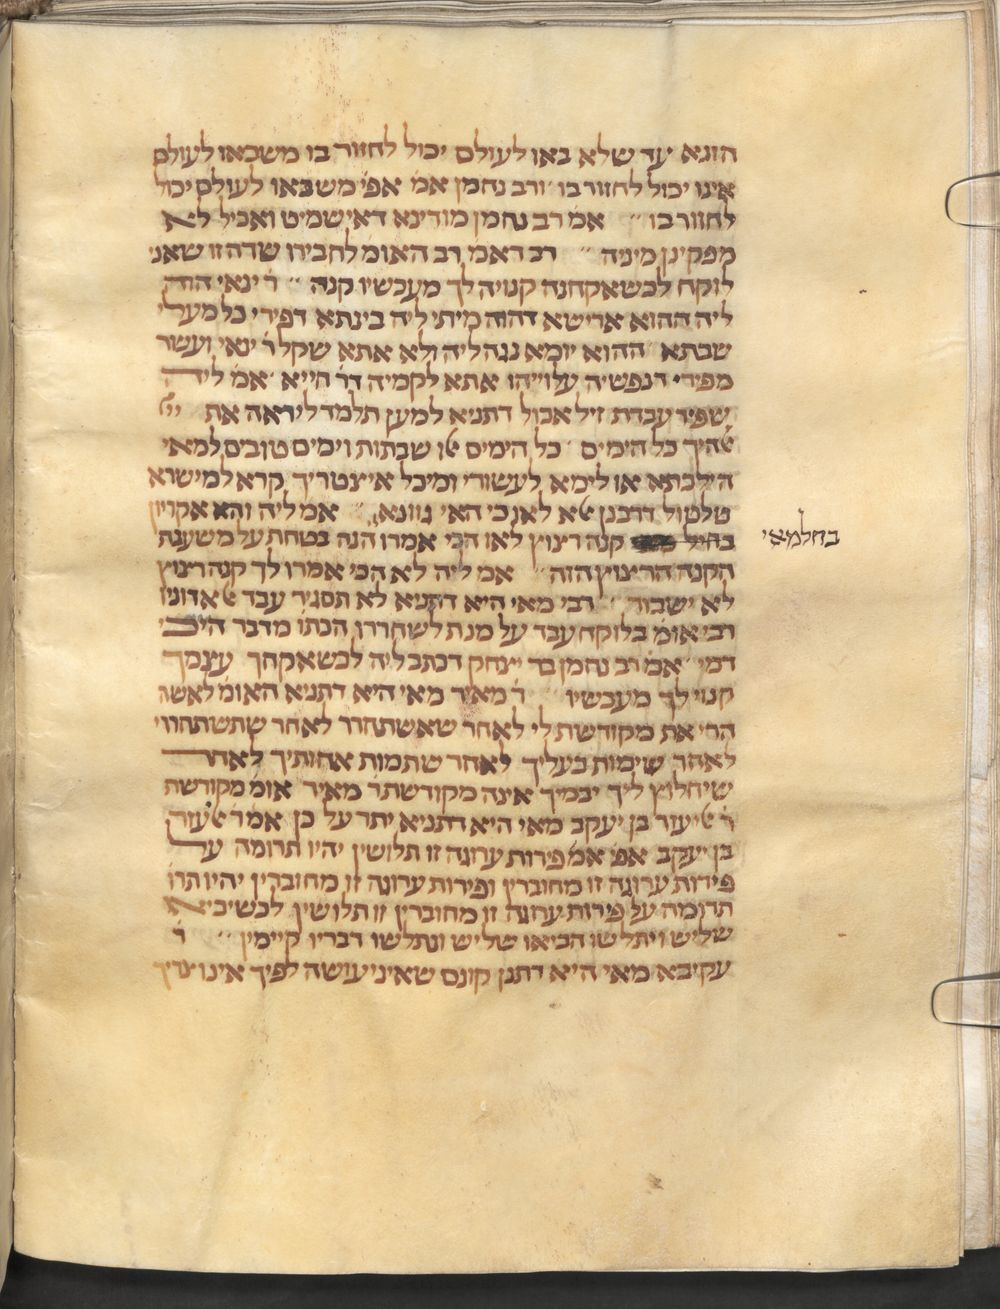 הונא עד שלא באו לעולם יכול לחזור בו משבאו לעולם
אינו יכול לחזור בו ורב נחמן אמ׳ אפי׳ משבאו לעולם יכול
לחזור בו ״ אמ׳ רב נחמן מודינא דאי שמיט ואכיל לא
מפקינן מיניה ״ רב דאמ׳ רב האומ׳ לחבירו שדה זו שאני
לוקח לכשאקחנה קנויה לך מעכשיו קנה ״ ר׳ ינאי הוה
ליה ההוא אריסא דהוה מיתי ליה בינתא דפירי כל מעלי
שבתא ההוא יומא נגה ליה ולא אתא שקל ר׳ ינאי ועשר
מפירי דנפשיה עלוייהו אתא לקמיה דר׳ חייא אמ׳ ליה
שפיר עבדת זיל אכול דתניא למען תלמד ליראה את ייי
אהיך כל הימים כל הימים או שבתות וימים טובים למאי
הילכתא או לימא לעשורי ומיכל איצטריך קרא למישרא
טלטול דרבנן אא לאו כי האי גוונא ״ אמ׳ ליה והא אקריון
בחיל קנה רצוץ לאו הכי אמרו הנה בטחת על משענת
בחלמאי
הקנה הרצוץ הזה ״ אמ׳ ליה לא הכי אמרו לך קנה רצוץ
לא ישבור ״ רבי מאי היא דתניא לא תסגיר עבד אל אדוניו
רבי אומ׳ בלוקח עבד על מנת לשחררו הכתו מדבר היכי
דמי ״ אמ׳ רב נחמן בר יצחק דכתב ליה לכשאקחך עצמך
קנוי לך מעכשיו ר׳ מאיר מאי היא דתניא האומ׳ לאשה
הרי את מקודשת לי לאחר שאשתחרר לאחר שתשתחררי
לאחר שימות בעליך לאחר שתמות אחותיך לאחר
שיחלוץ ליך יבמיך אינה מקודשת ר׳ מאיר אומ׳ מקודשת
ר׳ אליעזר בן יעקב מאי היא דתניא יתר על כן אמר אליעזר
בן יעקב אפי׳ אמ׳ פירות ערוגה זו תלושין יהיו תרומה על
פירות ערוגה זו מחוברין ופירות ערוגה זו מחוברין יהיו תרו
תרומה על פירות ערוגה זו מחוברין זו תלושין לכשיביא
שליש ויתלשו הביאו שליש ונתלשו דבריו קיימין ״ ר׳
עקיבא מאי היא דתנן קונס שאיני עושה לפיך אינו צריך